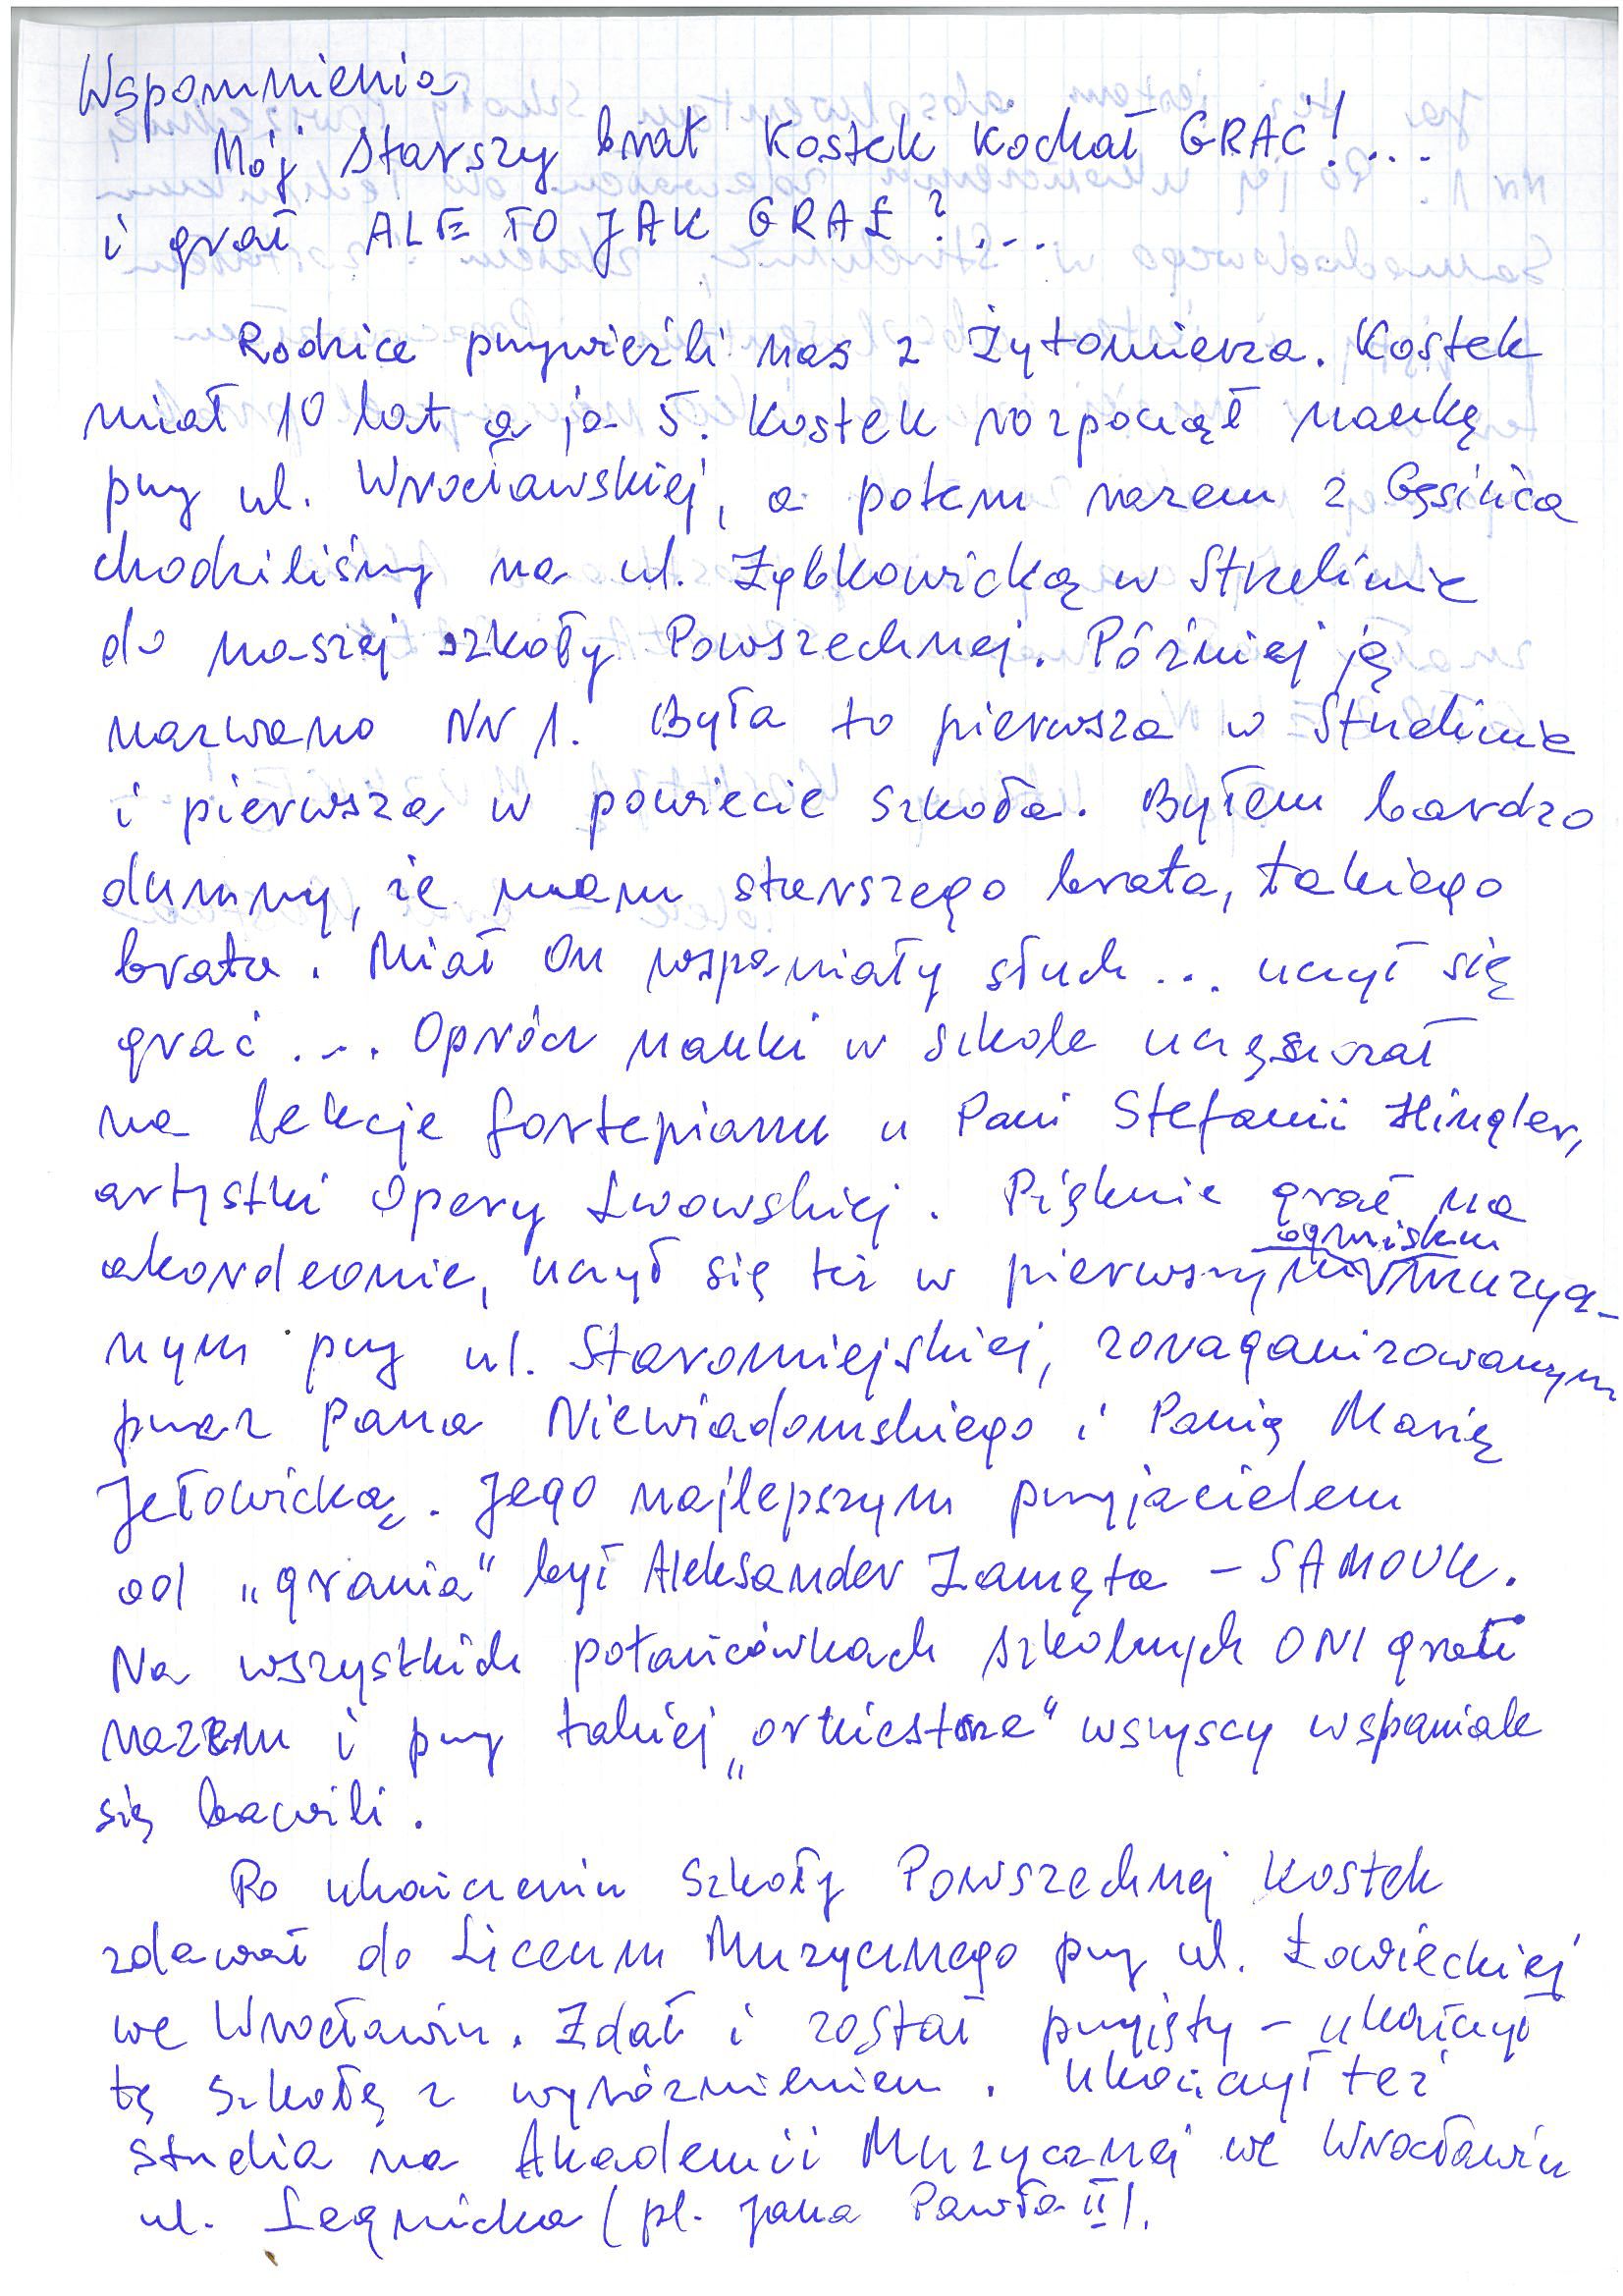 Wspomnienia
Mój Starszy brat Kostek kochał GRAĆ!....
i grał ALE TO JAK GRAŁ?....
Rodzice przywieźli nas z Żytomierza. Kostek
miał 10 lat a ja 5. Kostek rozpoczął naukę
przy ul. Wrocławskiej, a potem razem z Gęsińca
chodziliśmy na ul. Ząbkowicką w Strzelinie
do naszej szkoły Powszechnej. Później ją
nazwano Nr 1. Była to pierwsza w Strzelinie
i pierwsza w powiecie szkoła. Byłem bardzo
dumny, że mam starszego brata, takiego
brata. Miał On wspaniały słuch... uczył się
grać .... Oprócz nauki w szkole uczęszczał
na lekcje fortepianu u Pani Stefanii Hingler,
artystki Opery Lwowskiej. Pięknie grał na
akordeonie, uczył się też w pierwszym ognisku muzycz-
nym przy ul. Staromiejskiej, zoraganizowanym
przez Pana Niewiadomskiego i Panią Marię
Jełowicką. Jego najlepszym przyjacielem
od „grania" był Aleksander Zamęta - SAMOUK.
Na wszystkich potańcówkach szkolnych ONI grali
razem i przy takiej „orkiestrze" wszyscy wspaniale
się bawili.
Po ukończeniu Szkoły Powszechnej Kostek
zdawał do Liceum Muzycznego przy ul. Łowieckiej
we Wrocławiu. Zdał i został przyjęty - ukończył
tę szkołę z wyróżnieniem. Ukończył też
studia na Akademii Muzycznej we Wrocławiu
ul. Legnicka (pl. Jana Pawła II).